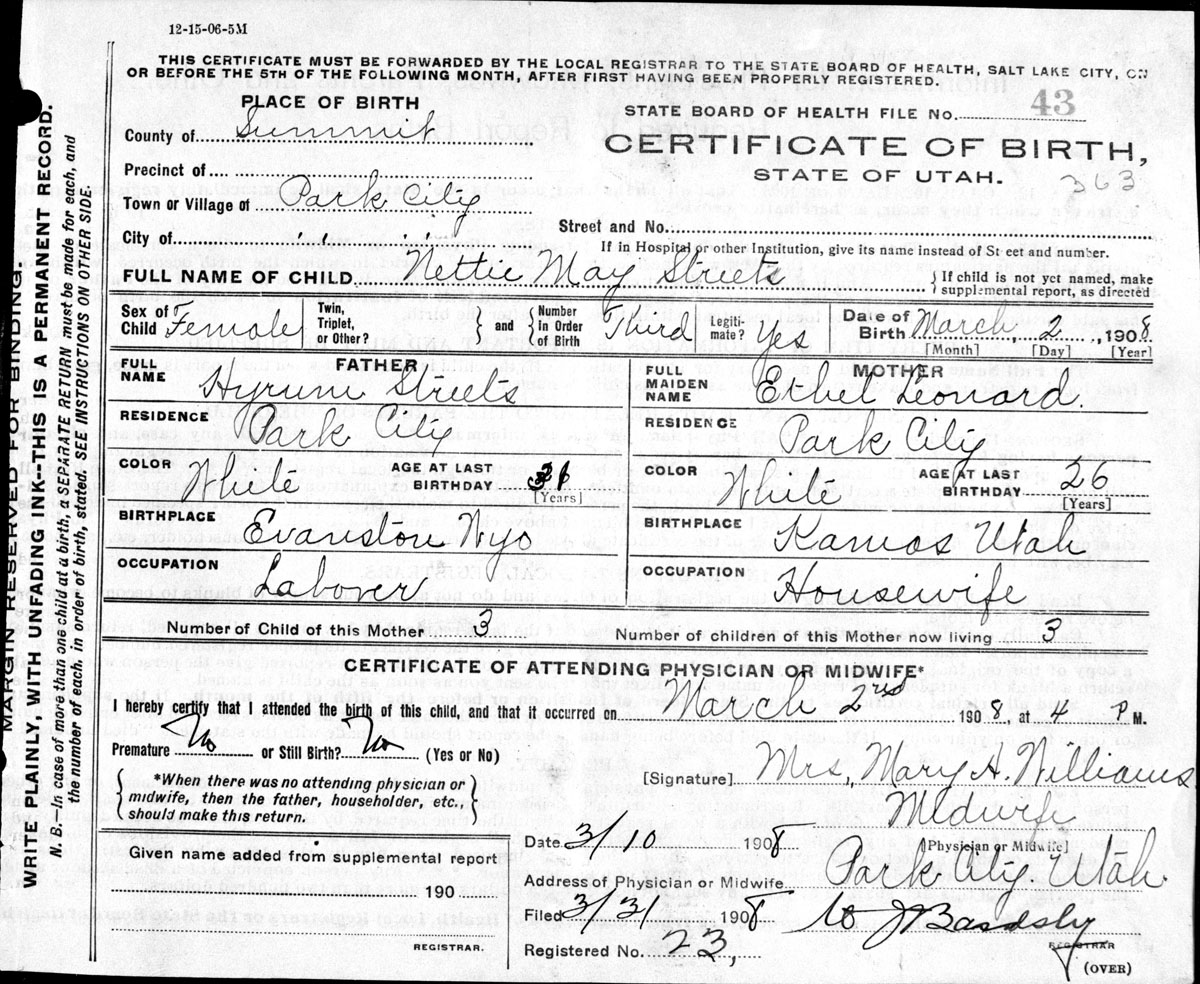 12-15-06-5M
THIS CERTIFICATE MUST BE FORWARDED BY THE LOCAL REGISTRAR TO THE STATE BOARD OF HEALTH, SALT LAKE CITY, ON
OR BEFORE THE 5TH OF THE FOLLOWING MONTH, AFTER FIRST HAVING BEEN PROPERLY REGISTERED.
PLACE OF BIRTH
County of Summit
Precinct of
Town or Village of Park City
City of " "
STATE BOARD OF HEALTH FILE No. 43
CERTIFICATE OF BIRTH,
STATE OF UTAH. 363
Street and No.
If in Hospital or other Institution, give its name instead of Street and number.
FULL NAME OF CHILD Nettie May Streets { If child is not yet named, make
supplemental report, as directed
Sex of Child Female
Twin, Triplet, or Other? { and } Number In Order of Birth Third
Legiti-mate? Yes
Date of Birth March 2, 1908
[Month] [Day] [Year]
FATHER
FULL NAME Hyrum Streets
RESIDENCE Park City
COLOR White AGE AT LAST BIRTHDAY 31
[Years]
BIRTHPLACE Evanston Wyo
OCCUPATION Laborer
MOTHER
FULL MAIDEN NAME Ethel Leonard.
RESIDENCE Park City
COLOR White AGE AT LAST BIRTHDAY 26
[Years]
BIRTHPLACE Kamos Utah
OCCUPATION Housewife
Number of Child of this Mother 3 Number of children of this Mother now living 3
CERTIFICATE OF ATTENDING PHYSICIAN OR MIDWIFE*
I hereby certify that I attended the birth of this child, and that it occurred on March 2nd 1908, at 4 P M.
Premature No or Still Birth? No (Yes or No)
{ *When there was no attending physician or
midwife, then the father, householder, etc.,
should make this return. }
[Signature] Mrs, Mary A. Williams
Midwife
[Physician or Midwife]
Given name added from supplemental report
190
REGISTRAR.
Date 3/10 1908
Address of Physician or Midwife Park City. Utah.
Filed 3/31 1908
Registered No. 23,
REGISTRAR
(OVER)
MARGIN RESERVED FOR BINDING.
WRITE PLAINLY, WITH UNFADING INK--THIS IS A PERMANENT RECORD.
N. B. In case of more than one child at a birth, a SEPARATE RETURN must be made for each, and
the number of each, in order of birth, stated. SEE INSTRUCTIONS ON OTHER SIDE.